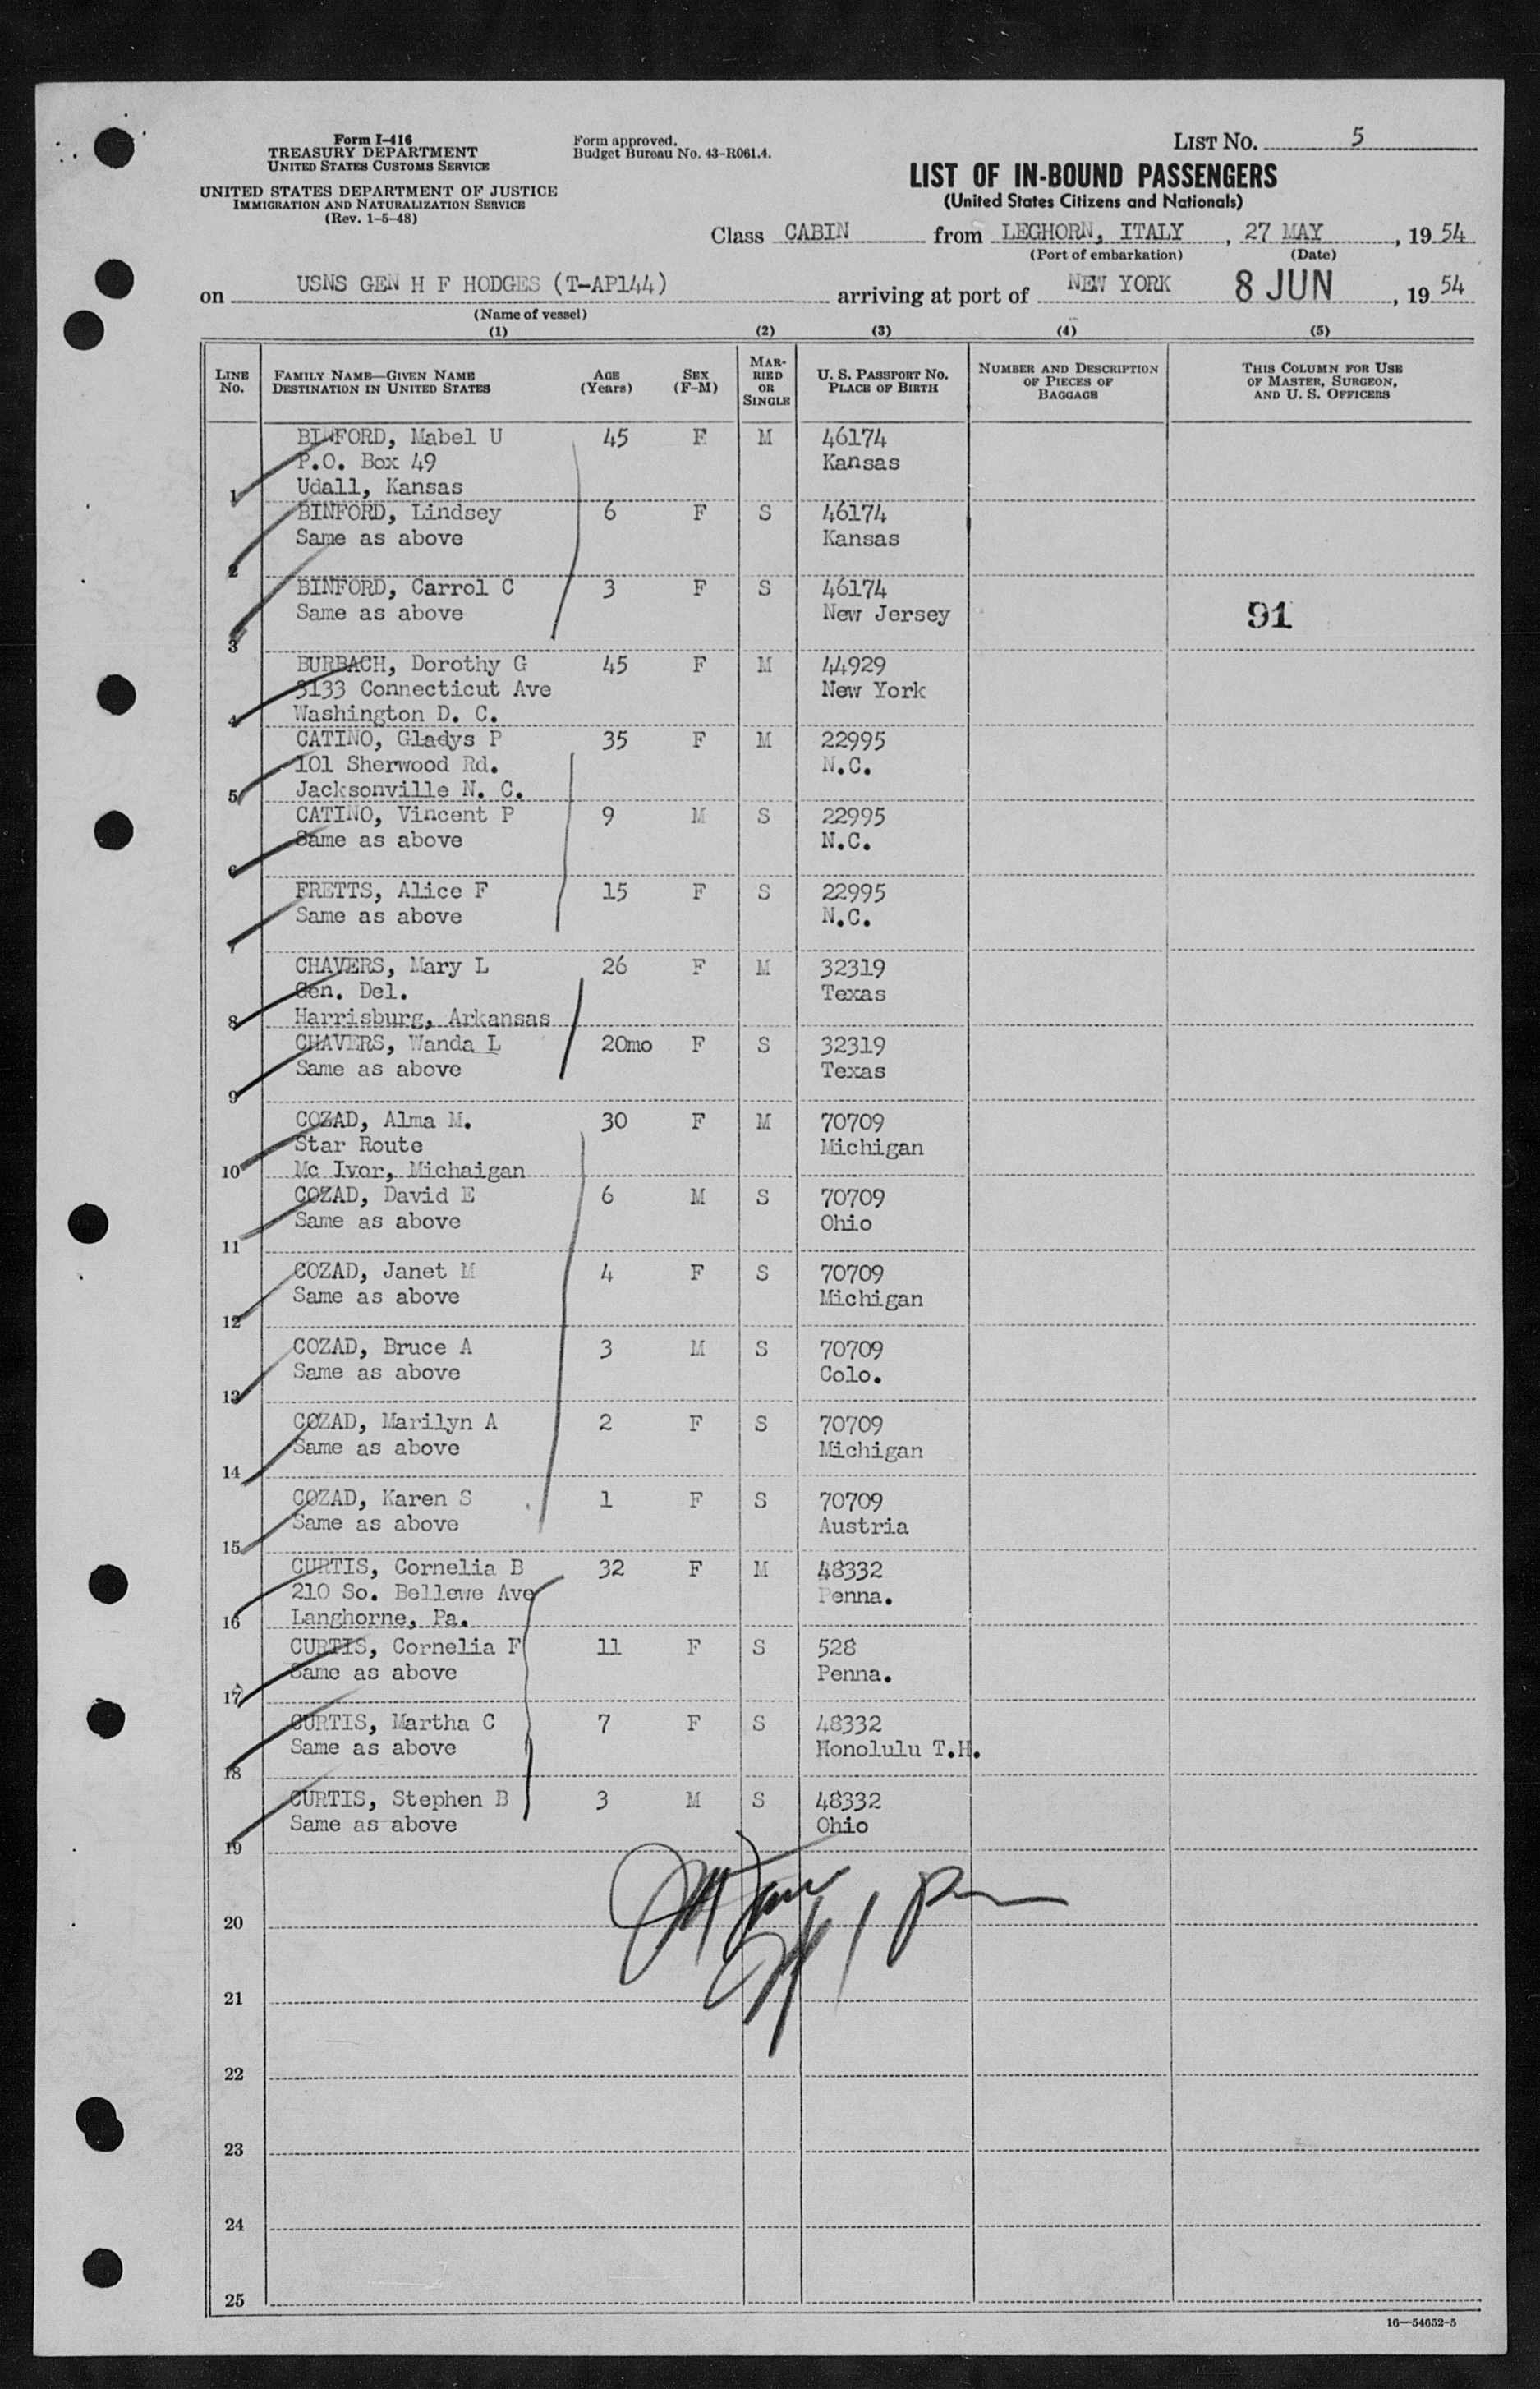 Form I-416
TREASURY DEPARTMENT
UNITED STATES CUSTOMS SERVICE
UNITED STATES DEPARTMENT OF JUSTICE
IMMIGRATION AND NATURALIZATION SERVICE
(Rev. 1-5-48)
Form approved.
Budget Bureau No. 43-R061.4.
LIST No. 5
LIST OF IN-BOUND PASSENGERS
(United States Citizens and Nationals)
Class CABIN from LEGHORN, ITALY, 27 MAY, 1954
(Port of embarkation) (Date)
on USNS GEN H F HODGES (T-AP144) arriving at port of NEW YORK 8 JUN, 19 54
(Name of vessel)
(1) (2) (3) (4) (5)
LINE No. FAMILY NAME—GIVEN NAME DESTINATION IN UNITED STATES AGE (Years) SEX (F-M) MARRIED OR SINGLE U. S. PASSPORT No. PLACE OF BIRTH NUMBER AND DESCRIPTION OF PIECES OF BAGGAGE THIS COLUMN FOR USE OF MASTER, SURGEON, AND U. S. OFFICERS
BINFORD, Mabel U 45 F M 46174
P.O. Box 49 Kansas
1 Udall, Kansas
BINFORD, Lindsey 6 F S 46174
Same as above Kansas
2
BINFORD, Carrol C 3 F S 46174
Same as above New Jersey 91
3
BURBACH, Dorothy G 45 F M 44929
3133 Connecticut Ave New York
4 Washington D. C.
CATINO, Gladys P 35 F M 22995
101 Sherwood Rd. N.C.
5 Jacksonville N. C.
CATINO, Vincent P 9 M S 22995
Same as above N.C.
6
FRETTS, Alice F 15 F S 22995
Same as above N.C.
7
CHAVERS, Mary L 26 F M 32319
Gen. Del. Texas
8 Harrisburg, Arkansas
CHAVERS, Wanda L 20mo F S 32319
Same as above Texas
9
COZAD, Alma M. 30 F M 70709
Star Route Michigan
10 Mc Ivor, Michaigan
COZAD, David E 6 M S 70709
Same as above Ohio
11
COZAD, Janet M 4 F S 70709
Same as above Michigan
12
COZAD, Bruce A 3 M S 70709
Same as above Colo.
13
COZAD, Marilyn A 2 F S 70709
Same as above Michigan
14
COZAD, Karen S 1 F S 70709
Same as above Austria
15
CURTIS, Cornelia B 32 F M 48332
210 So. Bellewe Ave Penna.
16 Langhorne, Pa.
CURTIS, Cornelia F 11 F S 528
Same as above Penna.
17
CURTIS, Martha C 7 F S 48332
Same as above Honolulu T.H.
18
CURTIS, Stephen B 3 M S 48332
Same as above Ohio
19
20
21
22
23
24
25
16—54652-5